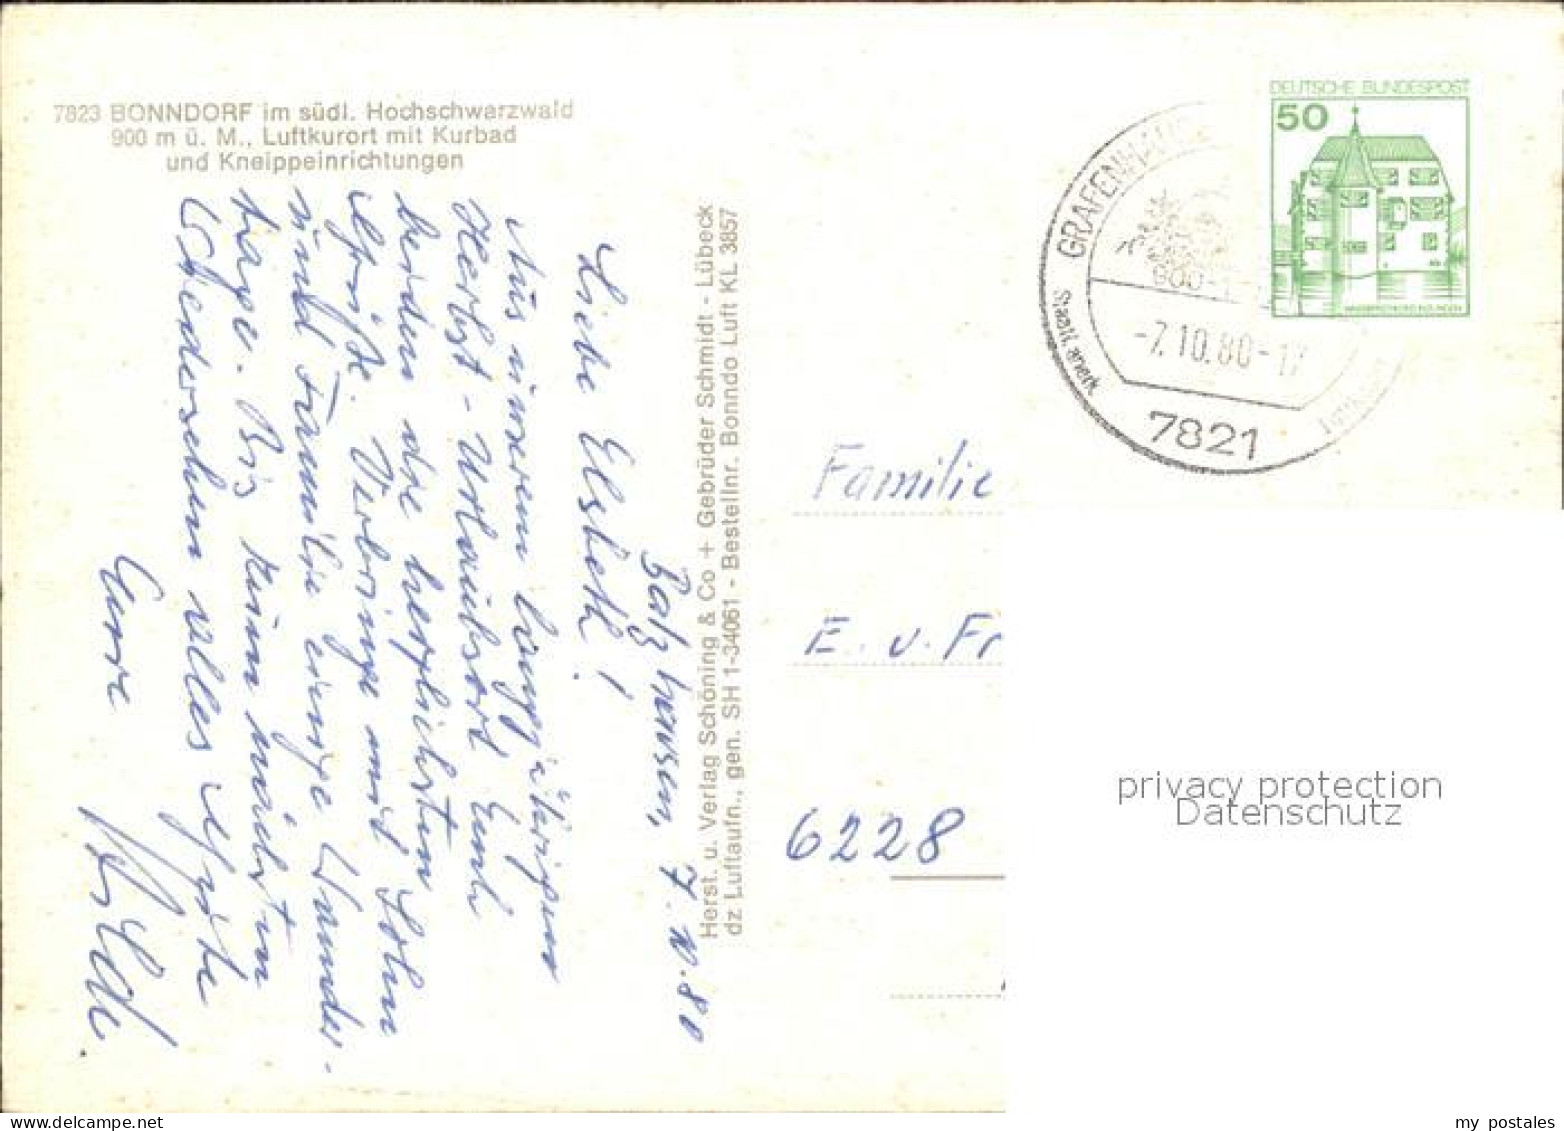 7823 BONNDORF im südl. Hochschwarzwald
900 m ü. M., Luftkurort mit Kurbad
und Kneippeinrichtungen
Balzhausen, 7.10.80
Liebe Elsbeth!
Aus unserem langjährigen
Herbst-Urlaubsort Euch
beiden die herzlichsten
Grüße. Verbringe mit Sohn
und Familie einige Wander-
tage. Bis zum nächsten
Wiedersehen alles Gute
Eure
Herst. u. Verlag Schöning & Co + Gebrüder Schmidt - Lübeck
dz Luftaufn., gen. SH 1-34061 - Bestellnr. Bonndo Luft KL 3857
DEUTSCHE BUNDESPOST
50
GRAFENHAUS
900-1
-7.10.80-17
7821
Familie
E. u. Fr
6228
privacy protection
Datenschutz
my postales